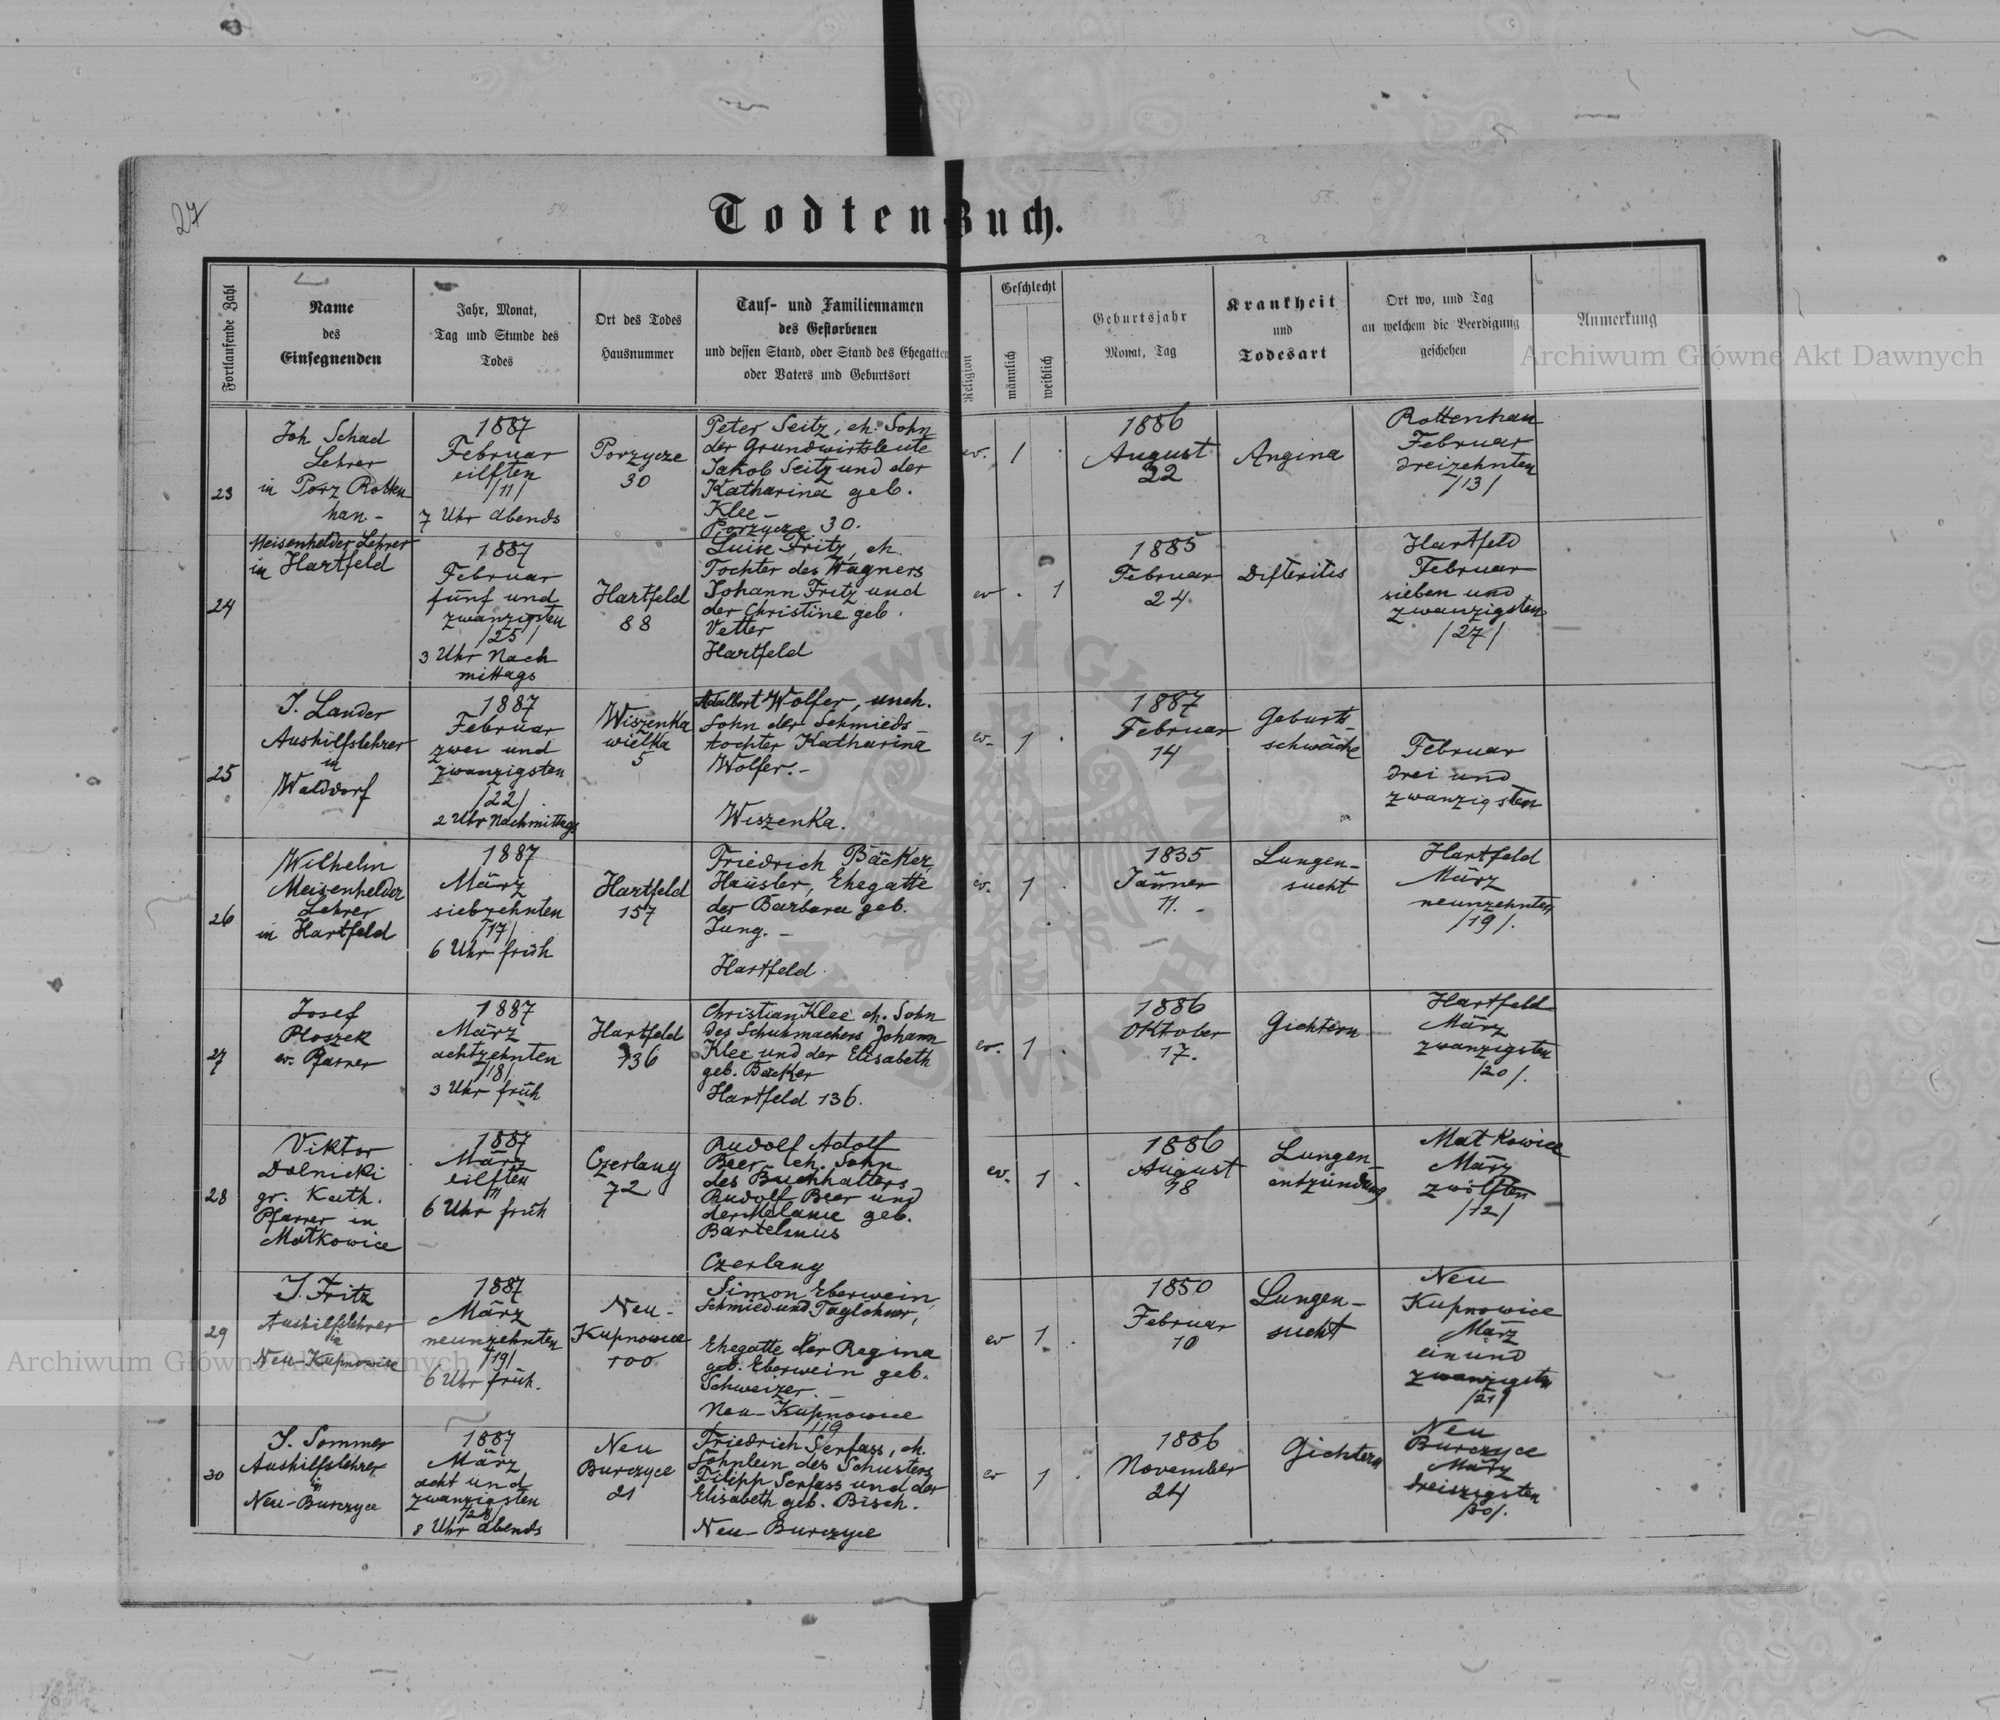 27
54
55.
TodtenBuch.
Fortlaufende Zahl
Name
des
Einsegnenden
Jahr, Monat,
Tag und Stunde des
Todes
Ort des Todes
Hausnummer
Tauf- und Familiennamen
des Gestorbenen
und dessen Stand, oder Stand des Ehegatten
oder Vaters und Geburtsort
Religion
Geschlecht
männlich
weiblich
Geburtsjahr
Monat, Tag
Krankheit
und
Todesart
Ort wo, und Tag
an welchem die Beerdigung
geschehen
Anmerkung
23
Joh Schad
Lehrer
in Porz Rotten
han -
1887
Februar
eilften
/11/
7 Uhr abends
Porzycze
30
Peter Seitz, eh. Sohn
der Grundwirtsleute
Jakob Seitz und der
Katharina geb.
Klee -
Porzycze 30.
ev.
1
.
1886
August
22
Angina
Rottenhan
Februar
dreizehnten
/13/
24
Meisenhelder Lehrer
in Hartfeld
1887
Februar
fünf und
zwanzigsten
/25/
3 Uhr Nach
mittags
Hartfeld
88
Luise Fritz, eh.
Tochter des Wagners
Johann Fritz und
der Christine geb.
Vetter
Hartfeld
ev
.
1
1885
Februar
24
Difteritis
Hartfeld
Februar
sieben und
zwanzigsten
/27/
25
J. Lander
Aushilfslehrer
in
Waldorf
1887
Februar
zwei und
zwanzigsten
/22/
2 Uhr Nachmittags
Wiszenka
wielka
5
Adalbert Wolfer, uneh.
Sohn der Schmieds-
tochter Katharina
Wolfer. -
Wiszenka.
ev.
1
.
1887
Februar
14
Geburts
schwäche
Februar
drei und
zwanzigsten
26
Wilhelm
Meisenhelder
Lehrer
in Hartfeld
1887
März
siebzehnten
/17/
6 Uhr früh
Hartfeld
157
Friedrich Bäcker,
Häusler, Ehegatte
der Barbara geb.
Jung. -
Hartfeld.
ev.
1
.
1835
Jänner
11. -
Lungen-
sucht
Hartfeld
März
neunzehnten
/19/.
27
Josef
Ploszek
ev. Pfarrer
1887
März
achtzehnten
/18/
3 Uhr früh
Hartfeld
136
Christian Klee eh. Sohn
des Schuhmachers Johann
Klee und der Elisabeth
geb. Bäcker
Hartfeld 136.
ev.
1
.
1886
Oktober
17.
Gichtern
Hartfeld
März
zwanzigsten
/20/.
28
Viktor
Dolnicki
gr. Kath.
Pfarrer in
Matkowice
1887
März
eilften
11
6 Uhr früh
Czerlany
72
Rudolf Adolf
Beer eh. Sohn
des Buchhalters
Rudolf Beer und
der Melanie geb.
Bartelmus
Czerlany
ev.
1
.
1886
August
Lungen-
entzündung
Matkowice
März
zwölften
/12/
29
J. Fritz
Aushilfslehrer
in
Neu-Kupnowice
1887
März
neunzehnten
/19/
6 Uhr früh.
Neu-
Kupnowice
100
Simon Eberwein,
Schmied und Taglöhner,
Ehegatte der Regina
geb. Eberwein geb.
Schweizer. -
Neu-Kupnowice
119
ev
1
.
1850
Februar
10
Lungen-
sucht
Neu
Kupnowice
März
ein und
zwanzigsten
/21/
30
J. Sommer
Aushilfslehrer
in
Neu-Burczyce
1887
März
acht und
zwanzigsten
/28/
8 Uhr abends
Neu
Burczyce
21
Friedrich Serfass, eh.
Söhnlein des Schusters
Filipp Serfass und der
Elisabeth geb. Bisch.
Neu-Burczyce
ev
1
.
1886
November
24
Gichtern
Neu
Burczyce
März
dreiszigsten
/30/.
Archiwum Główne Akt Dawnych
Archiwum Główne Akt Dawnych